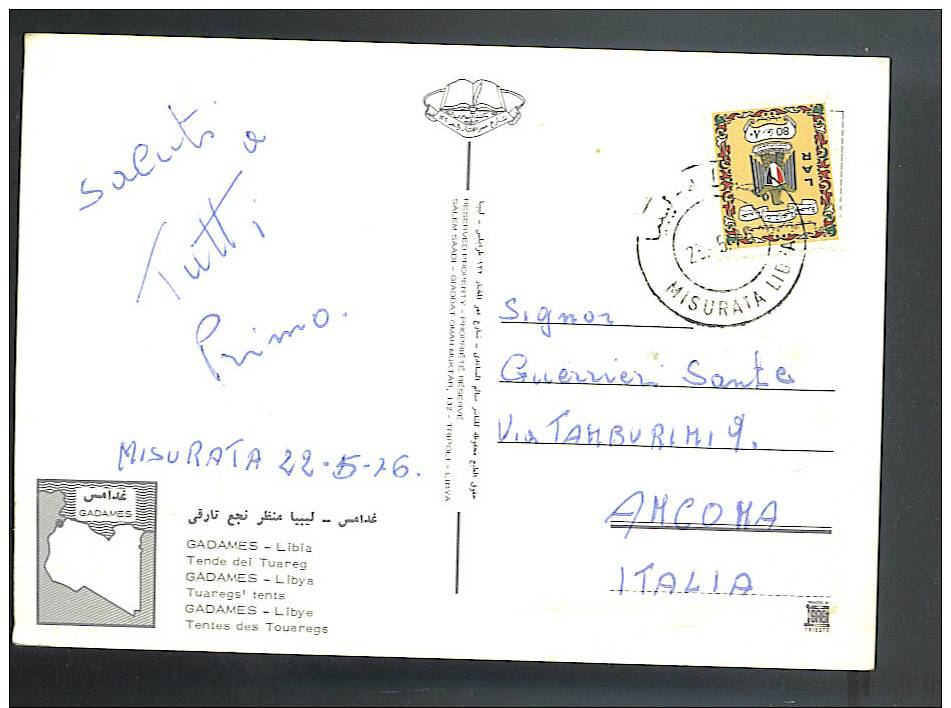 Saluti
a
Tutti
Primo.
MISURATA 22-5-76.
غدامس
GADAMES
غدامس – ليبيا منظر نجع تارقي
GADAMES – Libia
Tende dei Tuareg
GADAMES – Libya
Tuaregs' tents
GADAMES – Libye
Tentes des Touaregs
RESERVED PROPERTY – PROPRIÉTÉ RÉSERVÉ
SALEM SAADI – GIADDAT OMAR MUKTAR, 132 – TRIPOLI – LIBYA
80
L A R
ليبيا
MISURATA LIBYA
Signor
Guerrieri Sante
Via TAMBURINI 9.
ANCONA
ITALIA
TRIESTE